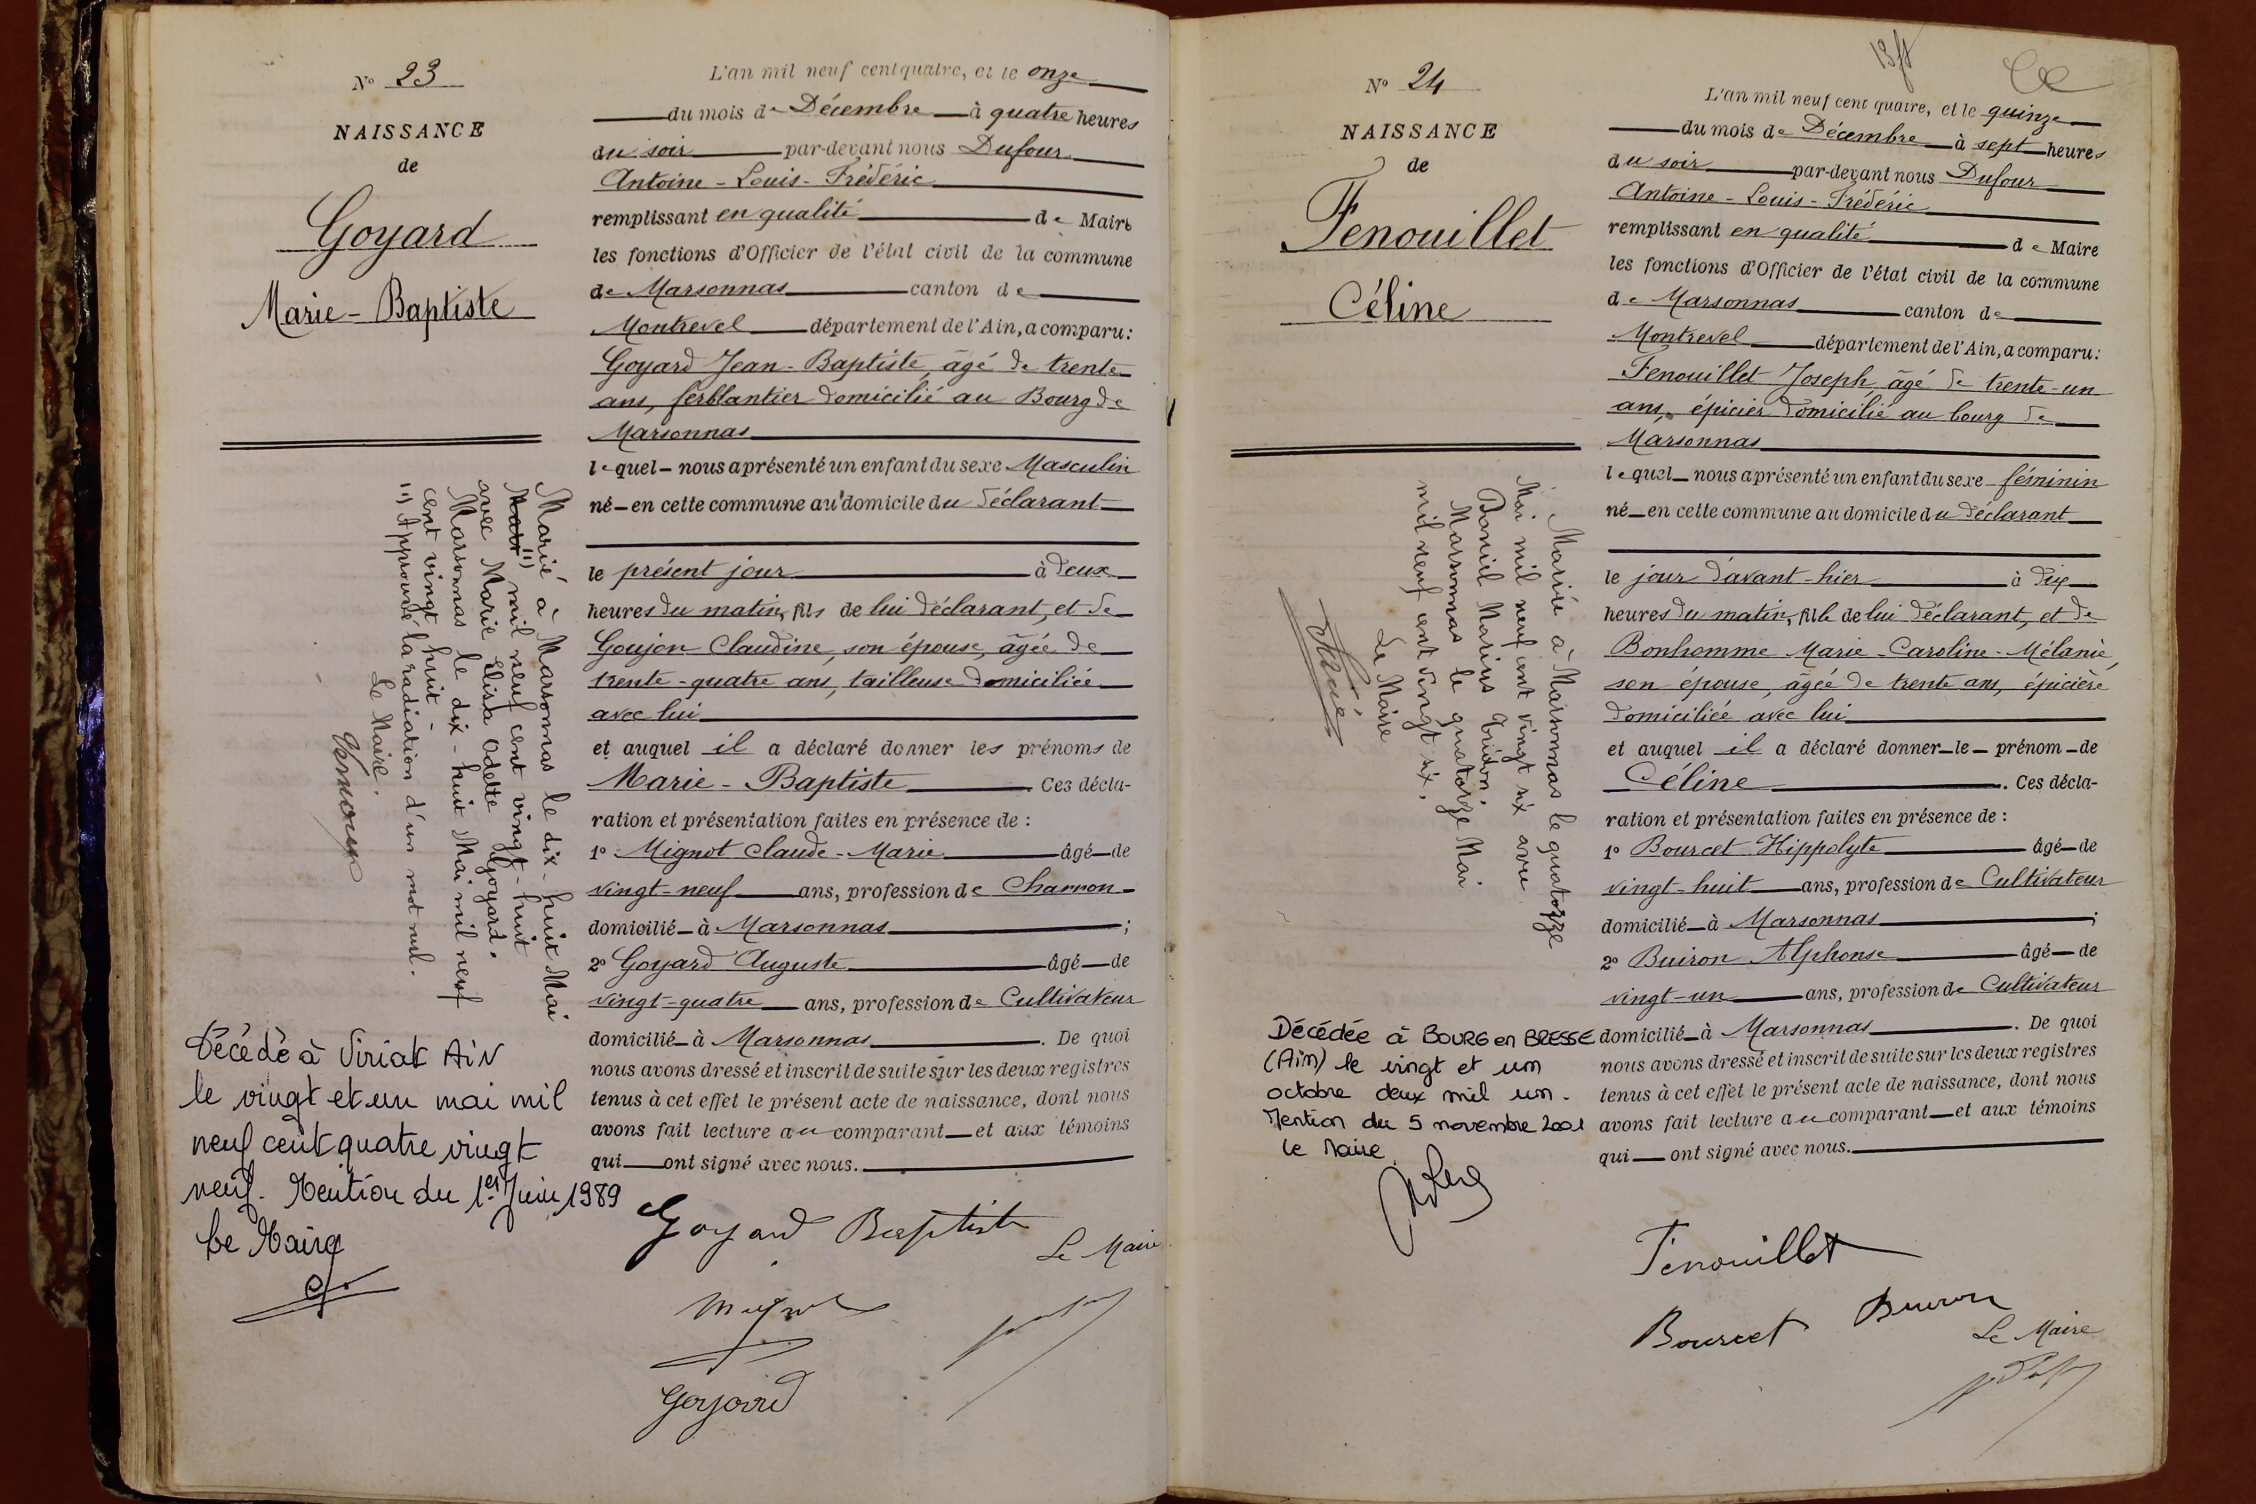 N° 23
NAISSANCE
de
Goyard
Marie - Baptiste
L'an mil neuf cent quatre, et le onze
du mois de Décembre à quatre heures
du soir par-devant nous Dufour
Antoine - Louis - Frédéric
remplissant en qualité de Maire
les fonctions d'Officier de l'état civil de la commune
de Marsonnas canton de
Montrevel département de l'Ain, a comparu:
Goyard Jean - Baptiste, âgé de trente
ans, ferblantier domicilié au Bourg de
Marsonnas
lequel nous a présenté un enfant du sexe Masculin
né en cette commune au domicile du déclarant
le présent jour à deux
heures du matin, fils de lui déclarant, et de
Goujon Claudine, son épouse, âgée de
trente - quatre ans, tailleuse domiciliée
avec lui
et auquel il a déclaré donner les prénoms de
Marie - Baptiste. Ces décla-
ration et présentation faites en présence de :
1° Mignot Claude - Marie âgé de
vingt-neuf ans, profession de Charron
domicilié à Marsonnas ;
2° Goyard Auguste âgé de
vingt-quatre ans, profession de Cultivateur
domicilié à Marsonnas. De quoi
nous avons dressé et inscrit de suite sur les deux registres
tenus à cet effet le présent acte de naissance, dont nous
avons fait lecture au comparant et aux témoins
qui ont signé avec nous.
Goyard Baptiste
Le Maire
Mignot
Goyard
Marié à Marsonnas le dix-huit Mai
(1) mil neuf cent vingt-huit
avec Marie Elisa Odette Goyard.
Marsonnas le dix-huit Mai mil neuf
cent vingt huit -
(1) Approuvé la radiation d'un mot nul.
Le Maire.
Décédé à Viriat AiN
le vingt et un mai mil
neuf cent quatre vingt
neuf. Mention du 1er Juin 1989
Le Maire
N° 24
NAISSANCE
de
Fenouillet
Céline
L'an mil neuf cent quatre, et le quinze
du mois de Décembre à sept heures
du soir par-devant nous Dufour
Antoine - Louis - Frédéric
remplissant en qualité de Maire
les fonctions d'Officier de l'état civil de la commune
de Marsonnas canton de
Montrevel département de l'Ain, a comparu:
Fenouillet Joseph, âgé de trente-un
ans, épicier domicilié au bourg de
Marsonnas
lequel nous a présenté un enfant du sexe féminin
né en cette commune au domicile du déclarant
le jour d'avant-hier à dix
heures du matin, fille de lui déclarant, et de
Bonhomme Marie - Caroline - Mélanie,
son épouse, âgée de trente ans, épicière
domiciliée avec lui
et auquel il a déclaré donner le prénom de
Céline. Ces décla-
ration et présentation faites en présence de :
1° Bourcet Hippolyte âgé de
vingt-huit ans, profession de Cultivateur
domicilié à Marsonnas ;
2° Buiron Alphonse âgé de
vingt-un ans, profession de Cultivateur
domicilié à Marsonnas. De quoi
nous avons dressé et inscrit de suite sur les deux registres
tenus à cet effet le présent acte de naissance, dont nous
avons fait lecture au comparant et aux témoins
qui ont signé avec nous.
Fenouillet
Bourcet Buiron
Le Maire
Mariée à Marsonnas le quatorze
Mai mil neuf cent vingt six avec
Daniel Marius Guidon.
Marsonnas le quatorze Mai
mil neuf cent vingt six.
Le Maire
Décédée à BOURG en BRESSE
(Ain) le vingt et un
octobre deux mil un.
Mention du 5 novembre 2001
Le Maire.